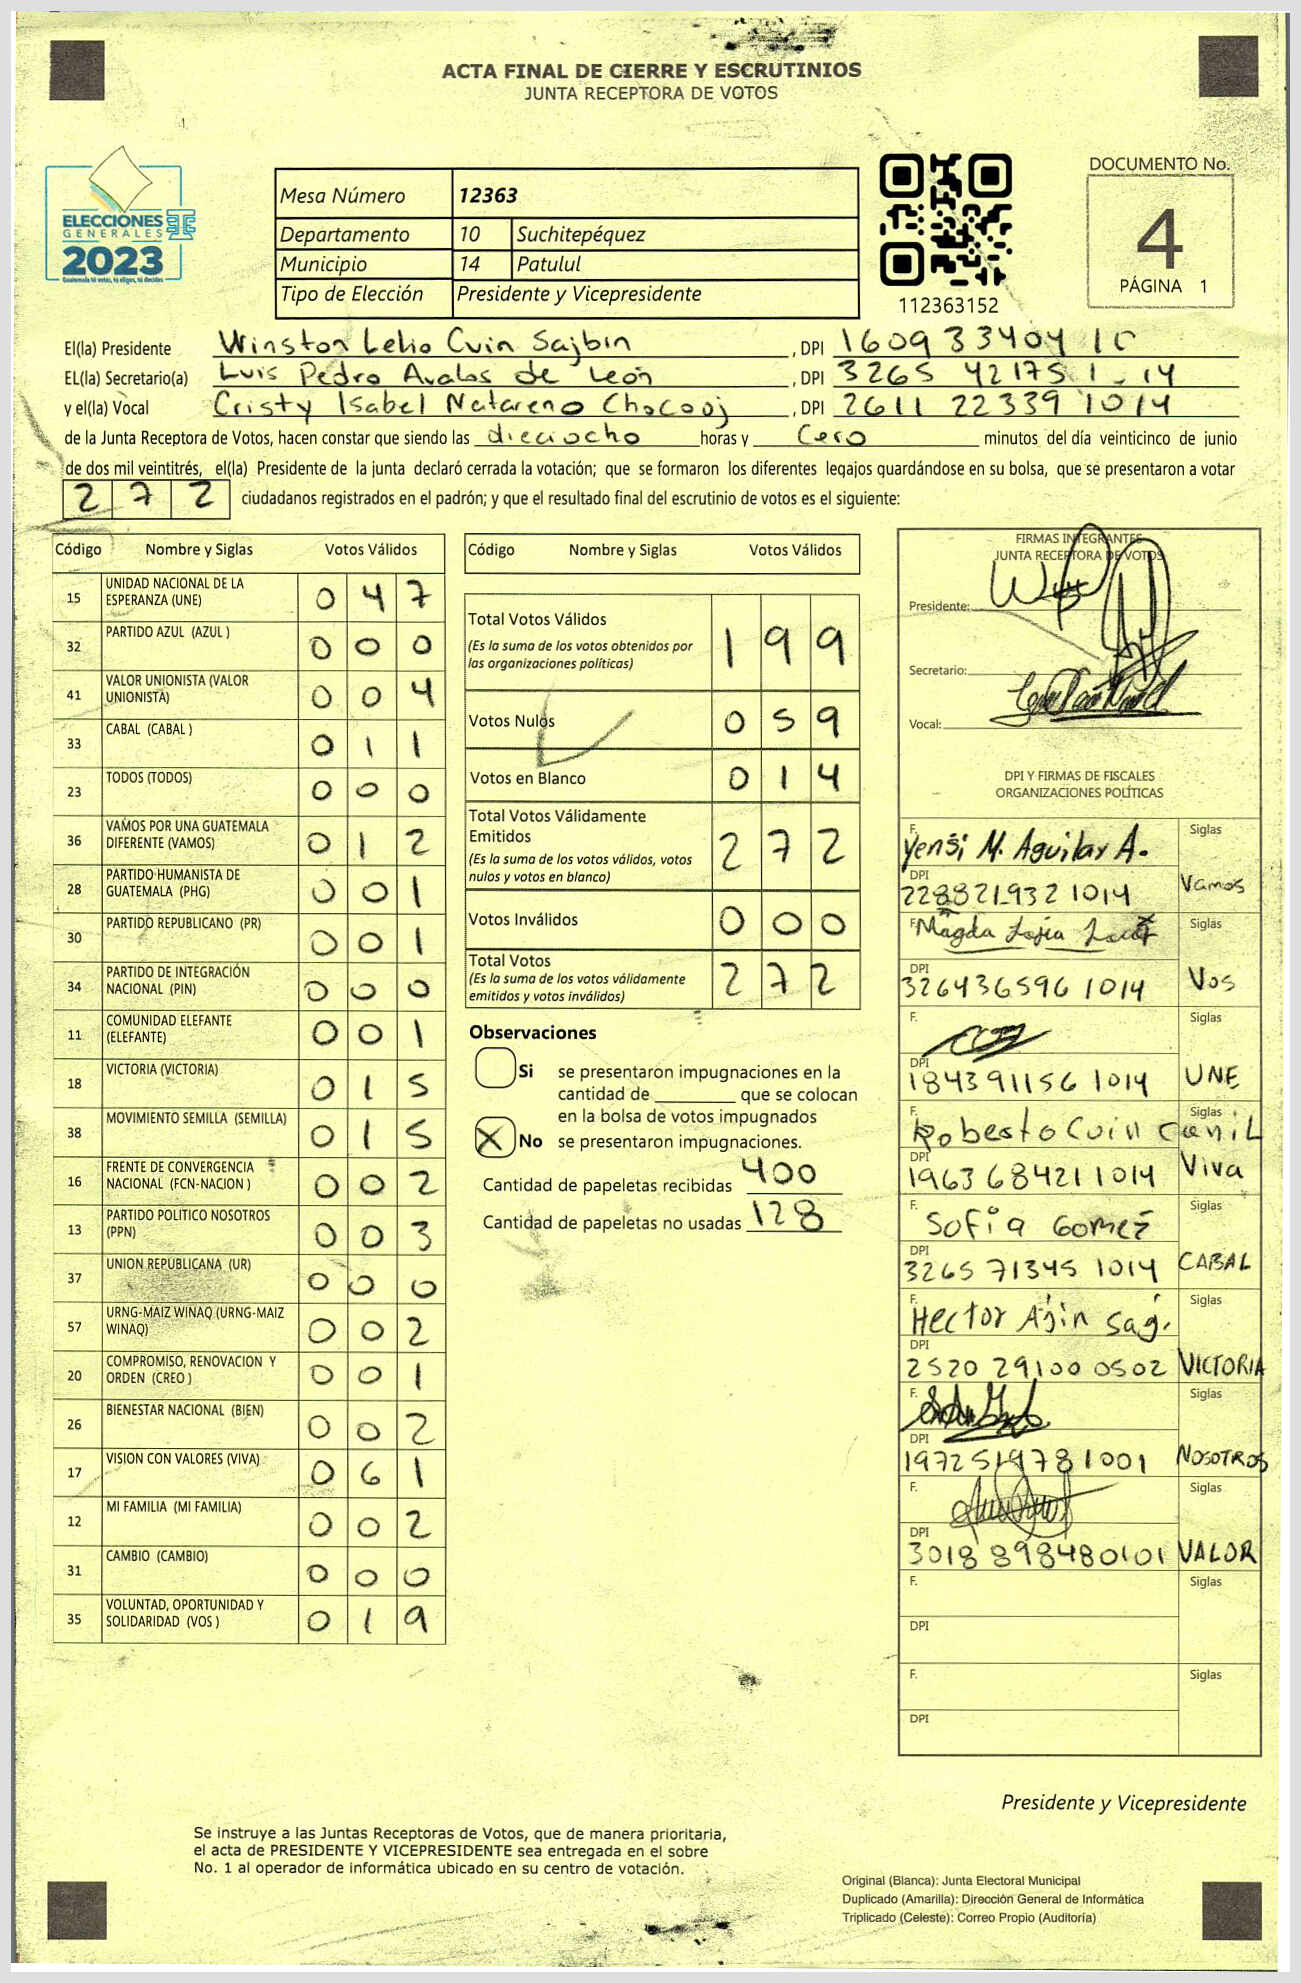 ACTA FINAL DE CIERRE Y ESCRUTINIOS
JUNTA RECEPTORA DE VOTOS
ELECCIONES
GENERALES
2023
Mesa Número 12363
Departamento 10 Suchitepéquez
Municipio 14 Patulul
Tipo de Elección Presidente y Vicepresidente
112363152
DOCUMENTO No.
4
PÁGINA 1
El(la) Presidente Winston Lelio Cuin Sajbin , DPI 1609 33404
EL(la) Secretario(a) Luis Pedro Avalos de León , DPI 3265 42175 1014
y el(la) Vocal Cristy Isabel Natareno Chocooj , DPI 2611 22339 1014
de la Junta Receptora de Votos, hacen constar que siendo las dieciocho horas y Cero minutos del día veinticinco de junio
de dos mil veintitrés, el(la) Presidente de la junta declaró cerrada la votación; que se formaron los diferentes legajos guardándose en su bolsa, que se presentaron a votar
272 ciudadanos registrados en el padrón; y que el resultado final del escrutinio de votos es el siguiente:
Código Nombre y Siglas Votos Válidos
15 UNIDAD NACIONAL DE LA ESPERANZA (UNE) 0 4 7
32 PARTIDO AZUL (AZUL ) 0 0 0
41 VALOR UNIONISTA (VALOR UNIONISTA) 0 0 4
33 CABAL (CABAL ) 0 1 1
23 TODOS (TODOS) 0 0 0
36 VAMOS POR UNA GUATEMALA DIFERENTE (VAMOS) 0 1 2
28 PARTIDO HUMANISTA DE GUATEMALA (PHG) 0 0 1
30 PARTIDO REPUBLICANO (PR) 0 0 1
34 PARTIDO DE INTEGRACIÓN NACIONAL (PIN) 0 0 0
11 COMUNIDAD ELEFANTE (ELEFANTE) 0 0 1
18 VICTORIA (VICTORIA) 0 1 5
38 MOVIMIENTO SEMILLA (SEMILLA) 0 1 5
16 FRENTE DE CONVERGENCIA NACIONAL (FCN-NACION ) 0 0 2
13 PARTIDO POLITICO NOSOTROS (PPN) 0 0 3
37 UNION REPUBLICANA (UR) 0 0 0
57 URNG-MAIZ WINAQ (URNG-MAIZ WINAQ) 0 0 2
20 COMPROMISO, RENOVACION Y ORDEN (CREO ) 0 0 1
26 BIENESTAR NACIONAL (BIEN) 0 0 2
17 VISION CON VALORES (VIVA) 0 6 1
12 MI FAMILIA (MI FAMILIA) 0 0 2
31 CAMBIO (CAMBIO) 0 0 0
35 VOLUNTAD, OPORTUNIDAD Y SOLIDARIDAD (VOS ) 0 1 9
Código Nombre y Siglas Votos Válidos
Total Votos Válidos 1 9 9
(Es la suma de los votos obtenidos por
las organizaciones políticas)
Votos Nulos 0 5 9
Votos en Blanco 0 1 4
Total Votos Válidamente
Emitidos 2 7 2
(Es la suma de los votos válidos, votos
nulos y votos en blanco)
Votos Inválidos 0 0 0
Total Votos 2 7 2
(Es la suma de los votos válidamente
emitidos y votos inválidos)
Observaciones
Si se presentaron impugnaciones en la
cantidad de ________ que se colocan
en la bolsa de votos impugnados
X No se presentaron impugnaciones.
Cantidad de papeletas recibidas 400
Cantidad de papeletas no usadas 128
FIRMAS INTEGRANTES
JUNTA RECEPTORA DE VOTOS
Presidente:
Secretario:
Vocal:
DPI Y FIRMAS DE FISCALES
ORGANIZACIONES POLÍTICAS
F. Yensi M. Aguilar A. Siglas
DPI 228821932 1014 Vamos
F. Magda Siglas
DPI 326436596 1014 Vos
F. Siglas
DPI 184391156 1014 UNE
F. Roberto Cuin Canil Siglas
DPI 1963 68421 1014 Viva
F. Sofia Gomez Siglas
DPI 3265 71345 1014 CABAL
F. Hector Ajin Saq. Siglas
DPI 2520 29100 0502 VICTORIA
F.
DPI 1972519781001 NOSOTROS
F. Siglas
DPI 3018 898480101 VALOR
F. Siglas
DPI
F. Siglas
DPI
Presidente y Vicepresidente
Se instruye a las Juntas Receptoras de Votos, que de manera prioritaria,
el acta de PRESIDENTE Y VICEPRESIDENTE sea entregada en el sobre
No. 1 al operador de informática ubicado en su centro de votación.
Original (Blanca): Junta Electoral Municipal
Duplicado (Amarilla): Dirección General de Informática
Triplicado (Celeste): Correo Propio (Auditoría)